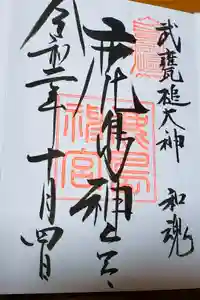 武甕槌大神 和魂
鹿島神宮
鹿島神宮
令和二年十月四日